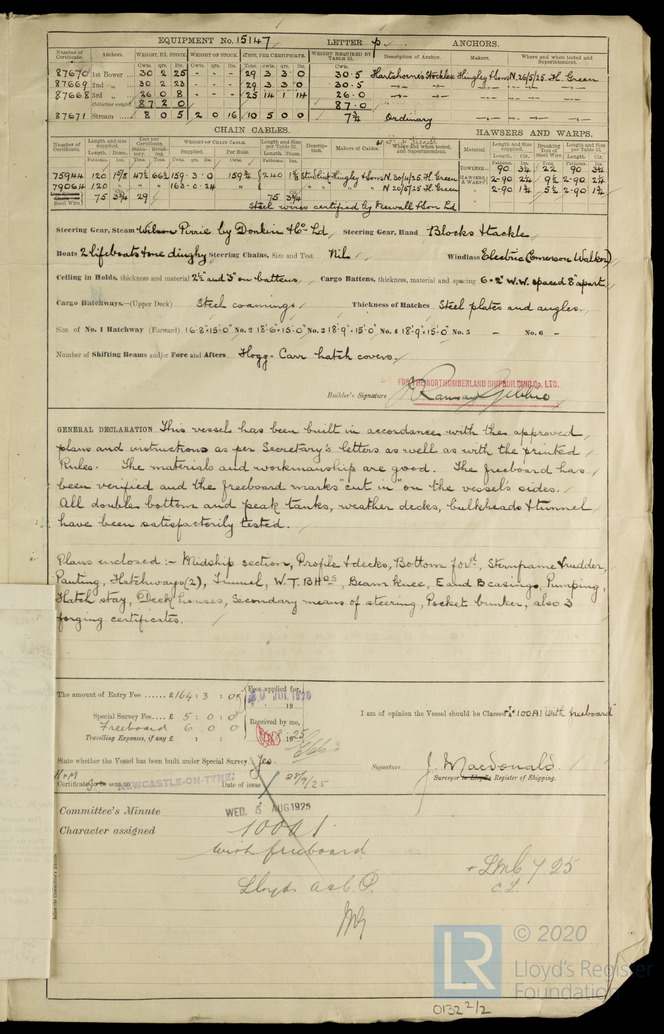 EQUIPMENT No. 15147 LETTER p ANCHORS.
Number of Certificate. Anchors. WEIGHT, EX. STOCK. WEIGHT OF STOCK. TEST, PER CERTIFICATE. WEIGHT REQUIRED BY TABLE 31. Description of Anchor. Makers. Where and when tested and Superintendent.
Cwts. qrs. lbs. Cwts. qrs. lbs. Tons. cwts. qrs. lbs. Cwts.
87670 1st Bower 30 2 25 - - - 29 3 3 0 30.5 Hartshorne's Stockless Hingley & Sons N. 26/5/25. H. Green
87669 2nd " 30 2 23 - - - 29 3 3 0 30.5
87668 3rd " 26 0 8 - - - 25 14 1 14 26.0
Collective weight 87 2 0 87.0
87671 Stream 8 0 5 2 0 16 10 5 0 0 7½ Ordinary
CHAIN CABLES. HAWSERS AND WARPS.
Number of Certificate. Length and size supplied. Test per Certificate. WEIGHT OF CHAIN CABLE. Length and Size per Table 31. Description. Makers of Cables. Where and when tested, and Superintendent. Material. Length and Size supplied. Breaking Test of Steel Wire. Length and Size per Table 31.
75944 120 159·3·0 159¾ 240 Stud Link Hingley & Sons N 30/4/25 H. Green
790644 120 " " 163·0·24 " " " N 20/5/25 H. Green
75 3¾ 29 75 3¾
TOWLINE 90 3½ 22 90 3½
HAWSERS & WARPS 2-90 2¾ 9½ 2-90 2¾
2-90 1¾ 5½ 2-90 1¾
Steel wires certified by Newall & Son Ld
Steering Gear, Steam Wilson Pirrie by Donkin & Co. Ld Steering Gear, Hand Blocks & tackle
Boats 2 lifeboats & one dinghy Steering Chains, Size and Test Nil Windlass Electric (Emerson Walker)
Ceiling in Holds, thickness and material 2½" and 3" on battens. Cargo Battens, thickness, material and spacing 6 × 2" W.W. spaced 8" apart.
Cargo Hatchways.—(Upper Deck) Steel coamings Thickness of Hatches Steel plates and angles.
Size of No. 1 Hatchway (Forward) 16'-8"×15'-0" No. 2 18'-6"×15'-0" No. 3 18'-9"×15'-0" No. 4 18'-9"×15'-0" No. 5 - No. 6 -
Number of Shifting Beams and/or Fore and Afters Hogg-Carr hatch covers.
FOR THE NORTHUMBERLAND SHIPBUILDING Co. LTD.
Builder's Signature J Ramsay Gebbie
GENERAL DECLARATION This vessel has been built in accordance with the approved
plans and instructions as per Secretary's letters as well as with the printed
Rules. The materials and workmanship are good. The freeboard has
been verified and the freeboard marks "cut in" on the vessel's sides.
All double bottom and peak tanks, weather decks, bulkheads & tunnel
have been satisfactorily tested.
Plans enclosed :- Midship section, Profile & decks, Bottom for'd, Sternframe & rudder,
Panting, Hatchways (2), Tunnel, W.T. BHds, Beam knee, E and B casings, Pumping
Hatch stay, Deck houses, Secondary means of steering, Pocket bunker, also 3
forging certificates.
The amount of Entry Fee ...... £164 : 3 : 0 Fees applied for,
Special Survey Fee.... £ 5 : 0 : 0
Freeboard 6 0 0 Received by me,
Travelling Expenses, if any £ : :
I am of opinion the Vessel should be Classed ✠100A1 with freeboard
State whether the Vessel has been built under Special Survey Yes
Signature J. Macdonald.
Surveyor to Lloyd's Register of Shipping.
Certificate to be sent to NEWCASTLE-ON-TYNE Date of issue
Committee's Minute WED. 5 AUG 1925
Character assigned 100A1
with freeboard
Lloyds A & C. P.
+ LMC 7.25
C.L.
© 2020
LR
Lloyd's Register
Foundation
0132 2/2